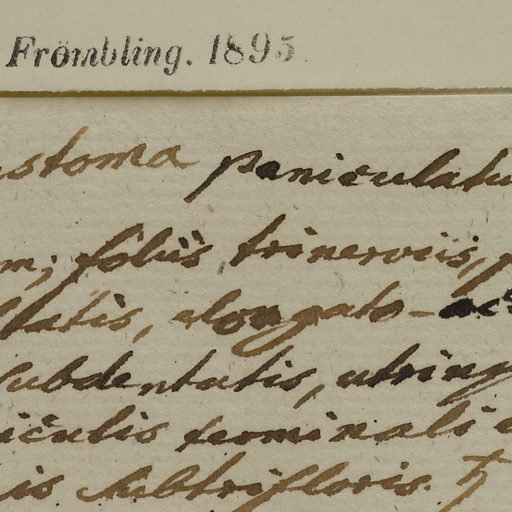 Frömbling. 1895
stoma paniculatu
m; foliis trinerviis, p
latis, elongato-ac
subdentatis, utring
iculis terminali
is subtrifloris. ♄